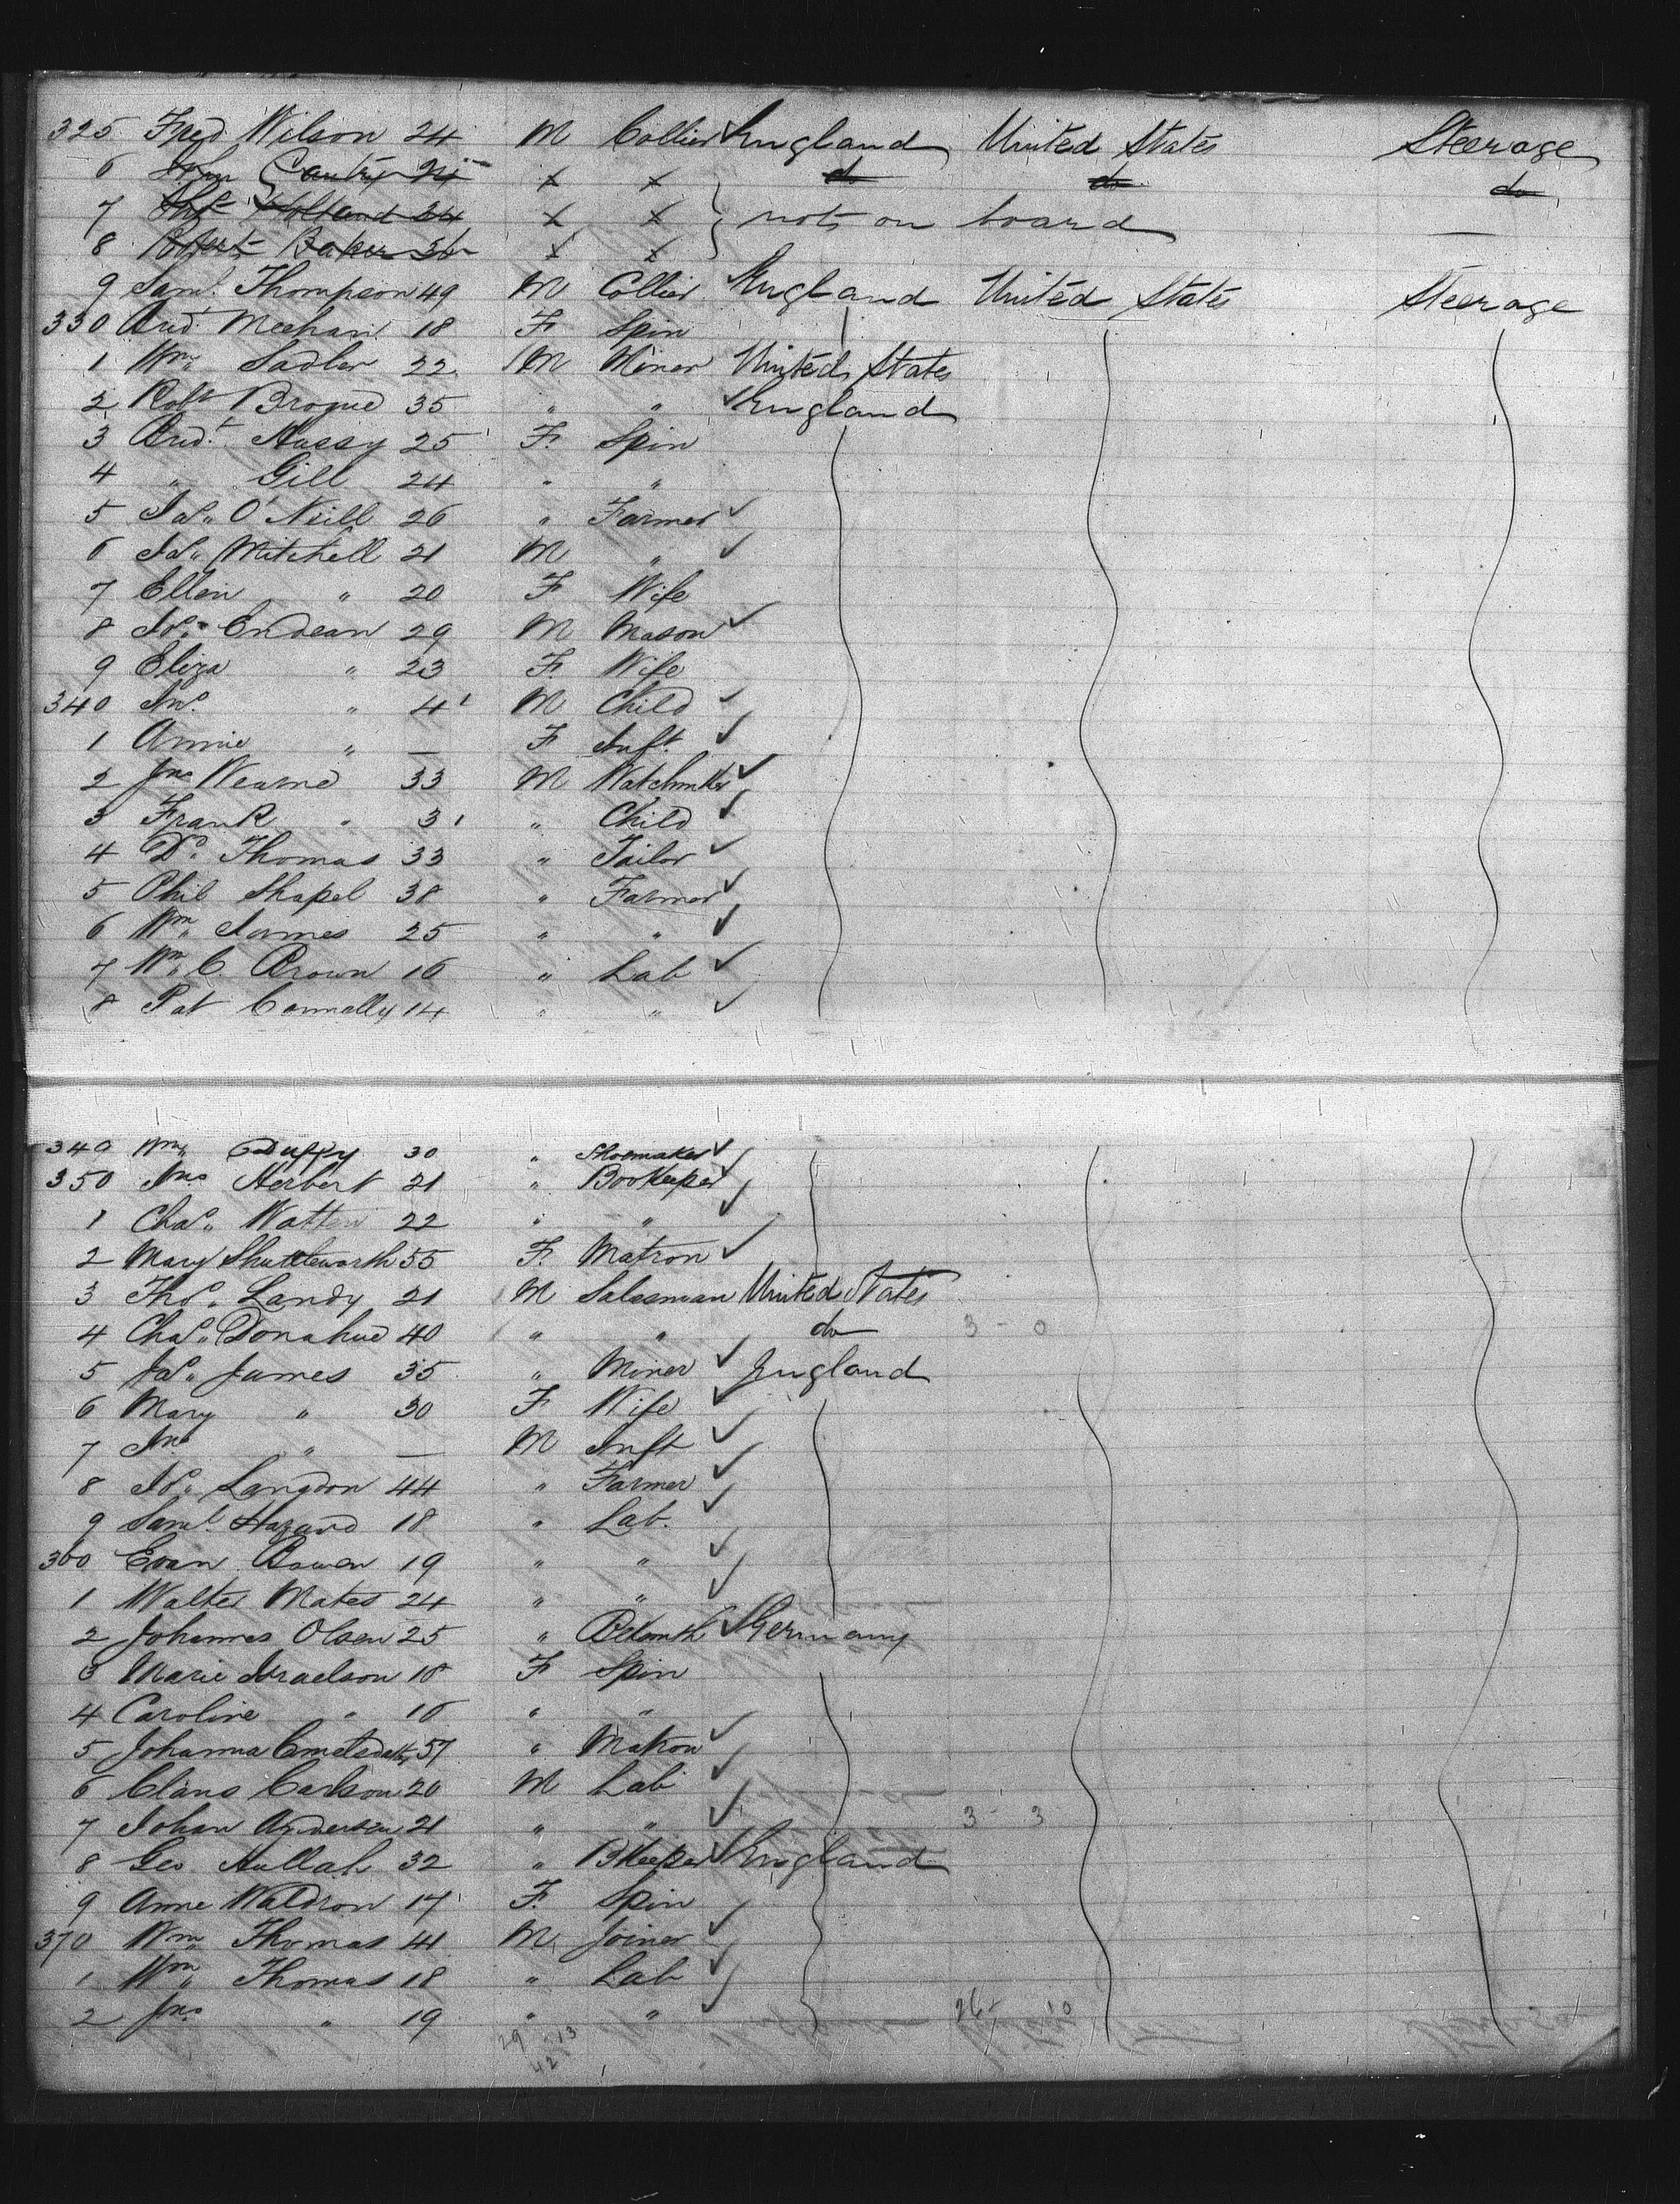 325 Fred Wilson 24 M Collier England United States Steerage
6 John Cantry 21 x x do do do
7 Tho.s Holland 24 x x } not on board
8 Robert Baker 36 x x
9 Saml. Thompson 49 M Collier England United States Steerage
330 Brid.t Meehan 18 F Spin
1 Wm. Sadler 22 M Miner United States
2 Robt Brogue 35 " " England
3 Brid.t Hussy 25 F. Spin
4 " Gill 24 " "
5 Jas. O'Neill 26 " Farmer
6 Jas. Mitchell 21 M "
7 Ellen " 20 F Wife
8 Jos. Endean 29 M Mason
9 Eliza " 23 F. Wife
340 Jno. " 4 M Child
1 Annie " — F Inft.
2 Jno Wearne 33 M Watchmker
3 Frank " 3 " Child
4 Thomas 33 " Tailor
5 Phil Shapel 38 " Farmer
6 Wm. James 25 " "
7 Wm. C. Brown 16 " Lab
8 Pat Connelly 14 " "
349 Wm. Duffy 30 " Shoemaker
350 Jno Herbert 21 " Bookeeper
1 Chas. Watten 22 " "
2 Mary Shuttleworth 55 F. Matron
3 Thos. Landy 21 M Salesman United States
4 Chas. Donahue 40 " " do 3 - 0
5 Jas. James 35 " Miner England
6 Mary " 30 F Wife
7 Jno " — M Inft
8 Jos. Langdon 44 " Farmer
9 Saml. Hazard 18 " Lab.
360 Evan Bowen 19 " "
1 Walter Mates 24 " "
2 Johannes Olsen 25 " Blksmith Germany
3 Marie Israelson 18 F Spin
4 Caroline " 16 " "
5 Johanna 57 " Matron
6 Clans Carlson 20 M Lab
7 Johan Andersen 21 " " 3 - 3
8 Geo Hullah 32 " BKeeper England
9 Anne Waldron 17 F. Spin
370 Wm. Thomas 41 M Joiner
1 Wm. Thomas 18 " Lab
2 Jno. " 19 " "
29 - 13 26 - 10
42